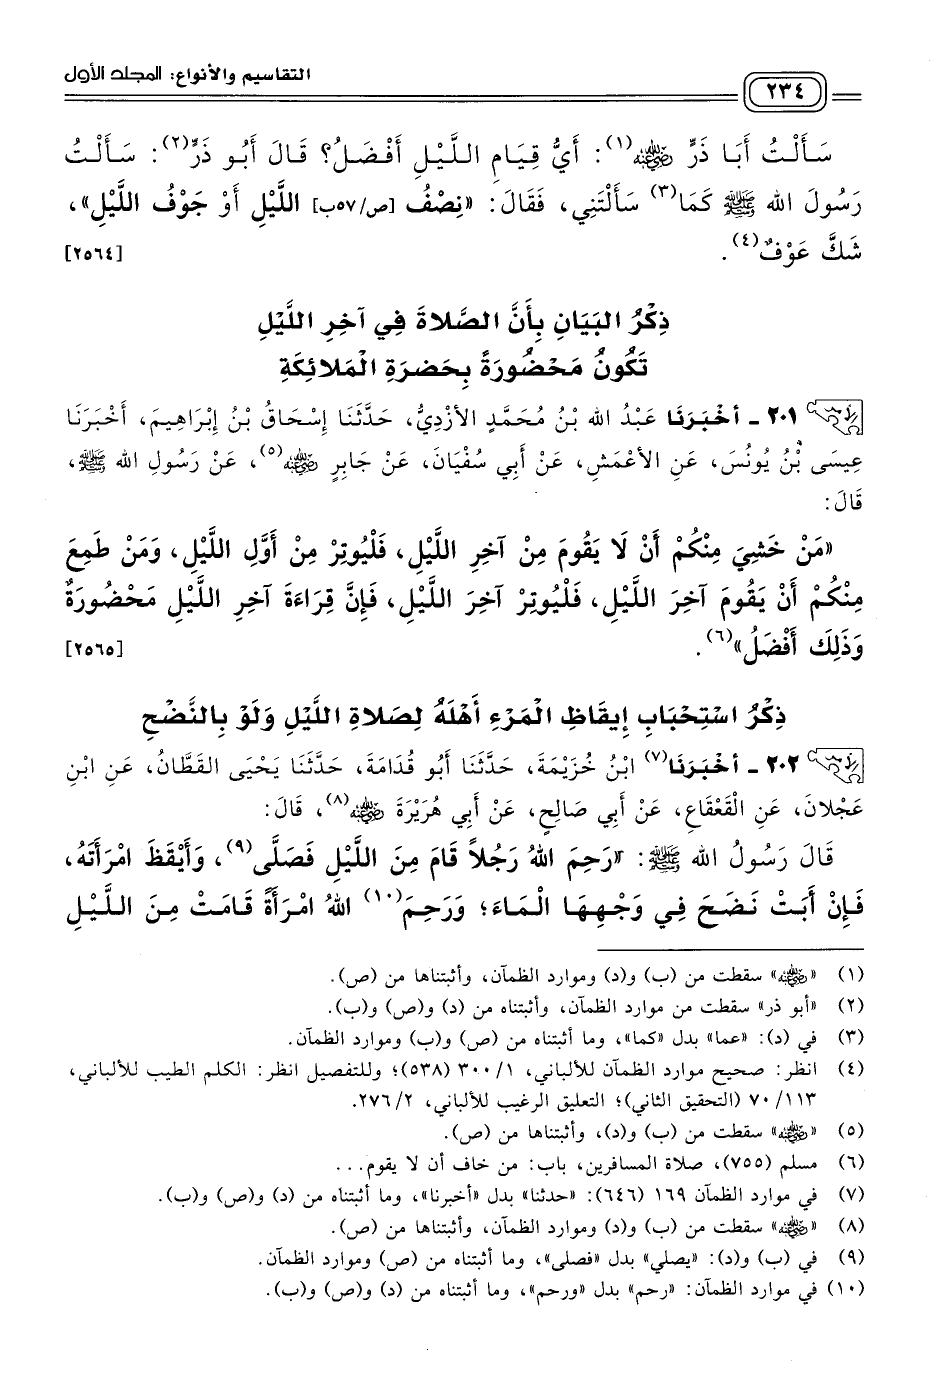 التقاسيم والأنواع: المجلد الأول
٢٣٤
سَأَلْتُ أَبَا ذَرٍّ رضي الله عنه(١): أَيُّ قِيَامِ اللَّيْلِ أَفْضَلُ؟ قَالَ أَبُو ذَرٍّ(٢): سَأَلْتُ
رَسُولَ الله ﷺ كَمَا(٣) سَأَلْتَنِي، فَقَالَ: «نِصْفُ [ص/٥٧ب] اللَّيْلِ أَوْ جَوْفُ اللَّيْلِ»،
شَكَّ عَوْفٌ(٤). [٢٥٦٤]
ذِكْرُ البَيَانِ بِأَنَّ الصَّلاةَ فِي آخِرِ اللَّيْلِ
تَكُونُ مَحْضُورَةً بِحَضرَةِ الْمَلائِكَةِ
٢٠١ - أَخْبَرَنَا عَبْدُ الله بْنُ مُحَمَّدٍ الأَزْدِيُّ، حَدَّثَنَا إِسْحَاقُ بْنُ إِبْرَاهِيمَ، أَخْبَرَنَا
عِيسَى بْنُ يُونُسَ، عَنِ الأَعْمَشِ، عَنْ أَبِي سُفْيَانَ، عَنْ جَابِرٍ رضي الله عنه(٥)، عَنْ رَسُولِ الله ﷺ،
قَالَ:
«مَنْ خَشِيَ مِنْكُمْ أَنْ لَا يَقُومَ مِنْ آخِرِ اللَّيْلِ، فَلْيُوتِرْ مِنْ أَوَّلِ اللَّيْلِ، وَمَنْ طَمِعَ
مِنْكُمْ أَنْ يَقُومَ آخِرَ اللَّيْلِ، فَلْيُوتِرْ آخِرَ اللَّيْلِ، فَإِنَّ قِرَاءَةَ آخِرِ اللَّيْلِ مَحْضُورَةٌ
وَذَلِكَ أَفْضَلُ»(٦). [٢٥٦٥]
ذِكْرُ اسْتِحْبَابِ إِيقَاظِ الْمَرْءِ أَهْلَهُ لِصَلاةِ اللَّيْلِ وَلَوْ بِالنَّضْحِ
٢٠٢ - أَخْبَرَنَا(٧) ابْنُ خُزَيْمَةَ، حَدَّثَنَا أَبُو قُدَامَةَ، حَدَّثَنَا يَحْيَى القَطَّانُ، عَنِ ابْنِ
عَجْلانَ، عَنِ الْقَعْقَاعِ، عَنْ أَبِي صَالِحٍ، عَنْ أَبِي هُرَيْرَةَ رضي الله عنه(٨)، قَالَ:
قَالَ رَسُولُ الله ﷺ: «رَحِمَ اللهُ رَجُلاً قَامَ مِنَ اللَّيْلِ فَصَلَّى(٩)، وَأَيْقَظَ امْرَأَتَهُ،
فَإِنْ أَبَتْ نَضَحَ فِي وَجْهِهَا الْمَاءَ؛ وَرَحِمَ(١٠) اللهُ امْرَأَةً قَامَتْ مِنَ اللَّيْلِ
(١) «رضي الله عنه» سقطت من (ب) و(د) وموارد الظمآن، وأثبتناها من (ص).
(٢) «أبو ذر» سقطت من موارد الظمآن، وأثبتناه من (د) و(ص) و(ب).
(٣) في (د): «عما» بدل «كما»، وما أثبتناه من (ص) و(ب) وموارد الظمآن.
(٤) انظر: صحيح موارد الظمآن للألباني، ٣٠٠/١ (٥٣٨)؛ وللتفصيل انظر: الكلم الطيب للألباني،
٧٠/١١٣ (التحقيق الثاني)؛ التعليق الرغيب للألباني، ٢٧٦/٢.
(٥) «رضي الله عنه» سقطت من (ب) و(د)، وأثبتناها من (ص).
(٦) مسلم (٧٥٥)، صلاة المسافرين، باب: من خاف أن لا يقوم...
(٧) في موارد الظمآن ١٦٩ (٦٤٦): «حدثنا» بدل «أخبرنا»، وما أثبتناه من (د) و(ص) و(ب).
(٨) «رضي الله عنه» سقطت من (ب) و(د) وموارد الظمآن، وأثبتناها من (ص).
(٩) في (ب) و(د): «يصلي» بدل «فصلى»، وما أثبتناه من (ص) وموارد الظمآن.
(١٠) في موارد الظمآن: «رحم» بدل «ورحم»، وما أثبتناه من (د) و(ص) و(ب).